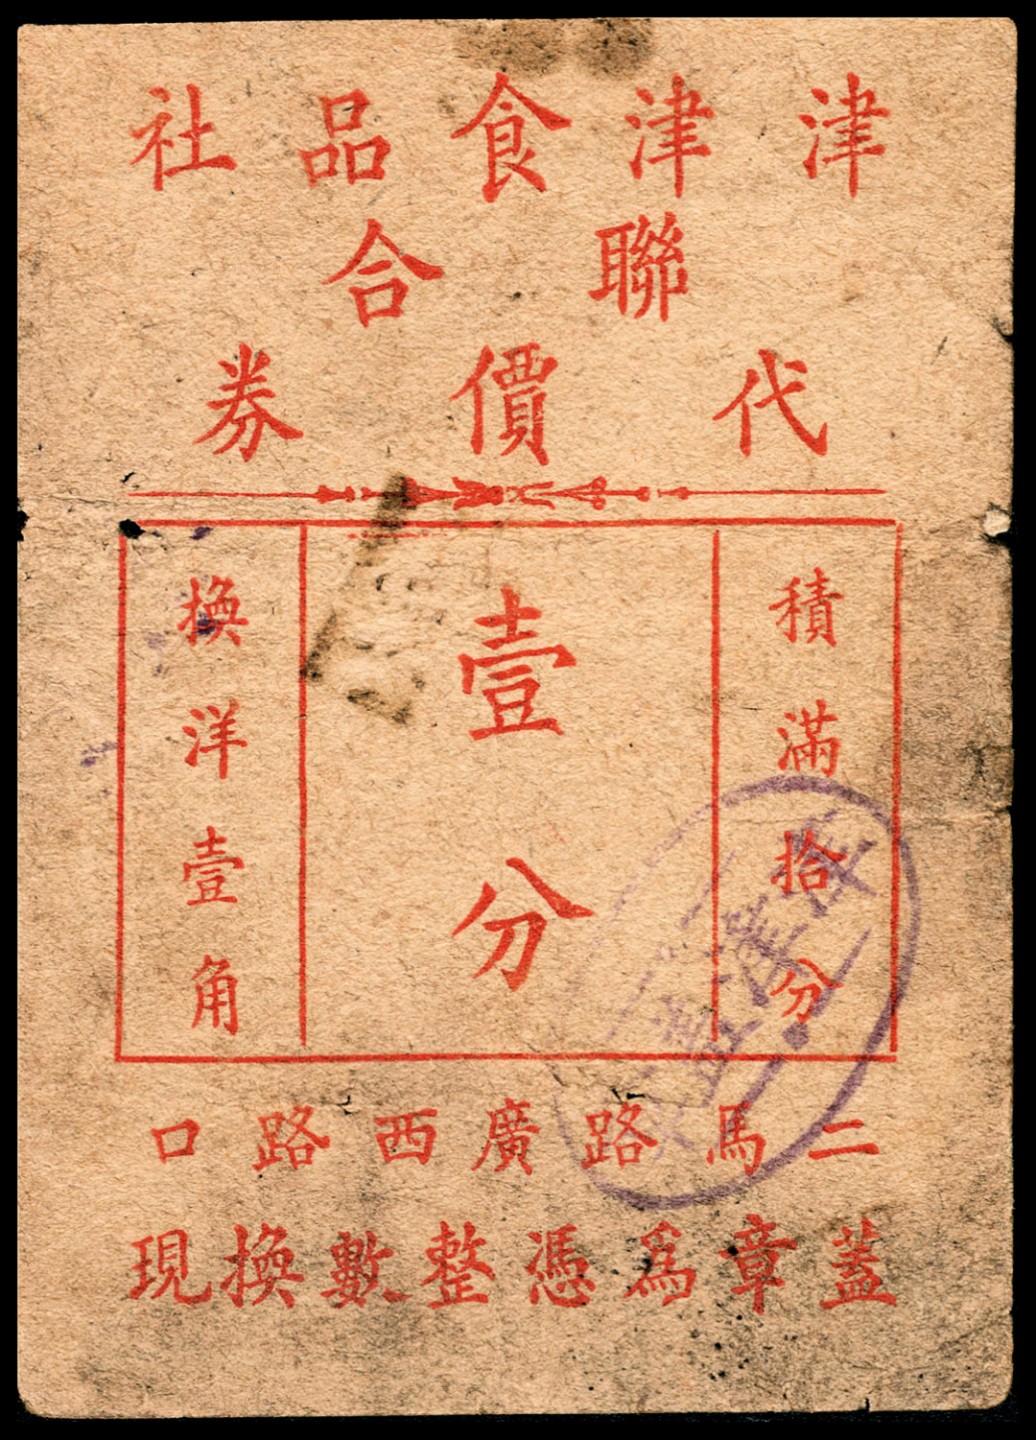 津津食品社
聯合
代價券
積滿拾分
壹分
換洋壹角
二馬路廣西路口
蓋章爲憑整數換現